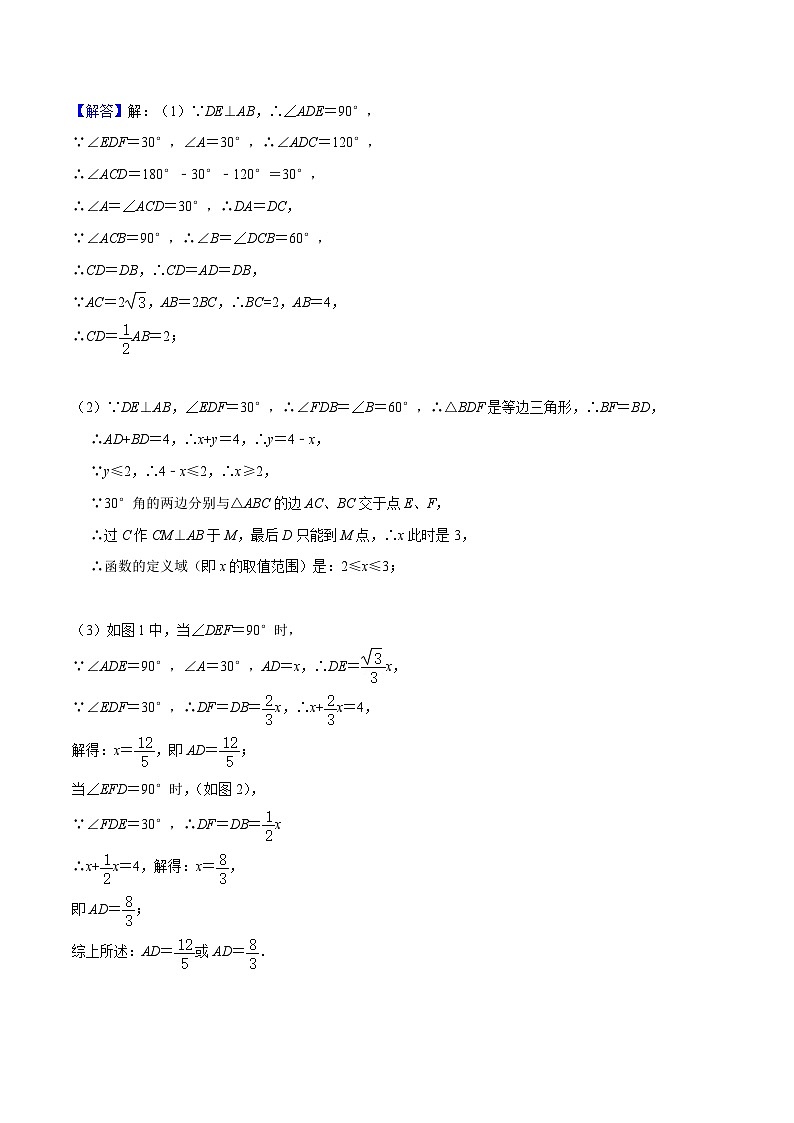 【解答】解：（1）∵DE⊥AB，∴∠ADE＝90°，
∵∠EDF＝30°，∠A＝30°，∴∠ADC＝120°，
∴∠ACD＝180°﹣30°﹣120°＝30°，
∴∠A＝∠ACD＝30°，∴DA＝DC，
∵∠ACB＝90°，∴∠B＝∠DCB＝60°，
∴CD＝DB，∴CD＝AD＝DB，
∵AC＝2√3，AB＝2BC，∴BC=2，AB＝4，
∴CD＝1/2AB＝2；
（2）∵DE⊥AB，∠EDF＝30°，∴∠FDB＝∠B＝60°，∴△BDF是等边三角形，∴BF＝BD，
∴AD+BD＝4，∴x+y＝4，∴y＝4﹣x，
∵y≤2，∴4﹣x≤2，∴x≥2，
∵30°角的两边分别与△ABC的边AC、BC交于点E、F，
∴过C作CM⊥AB于M，最后D只能到M点，∴x此时是3，
∴函数的定义域（即x的取值范围）是：2≤x≤3；
（3）如图1中，当∠DEF＝90°时，
∵∠ADE＝90°，∠A＝30°，AD＝x，∴DE＝√3/3x，
∵∠EDF＝30°，∴DF＝DB＝2/3x，∴x+2/3x＝4，
解得：x＝12/5，即AD＝12/5；
当∠EFD＝90°时，（如图2），
∵∠FDE＝30°，∴DF＝DB＝1/2x
∴x+1/2x＝4，解得：x＝8/3，
即AD＝8/3；
综上所述：AD＝12/5或AD＝8/3．